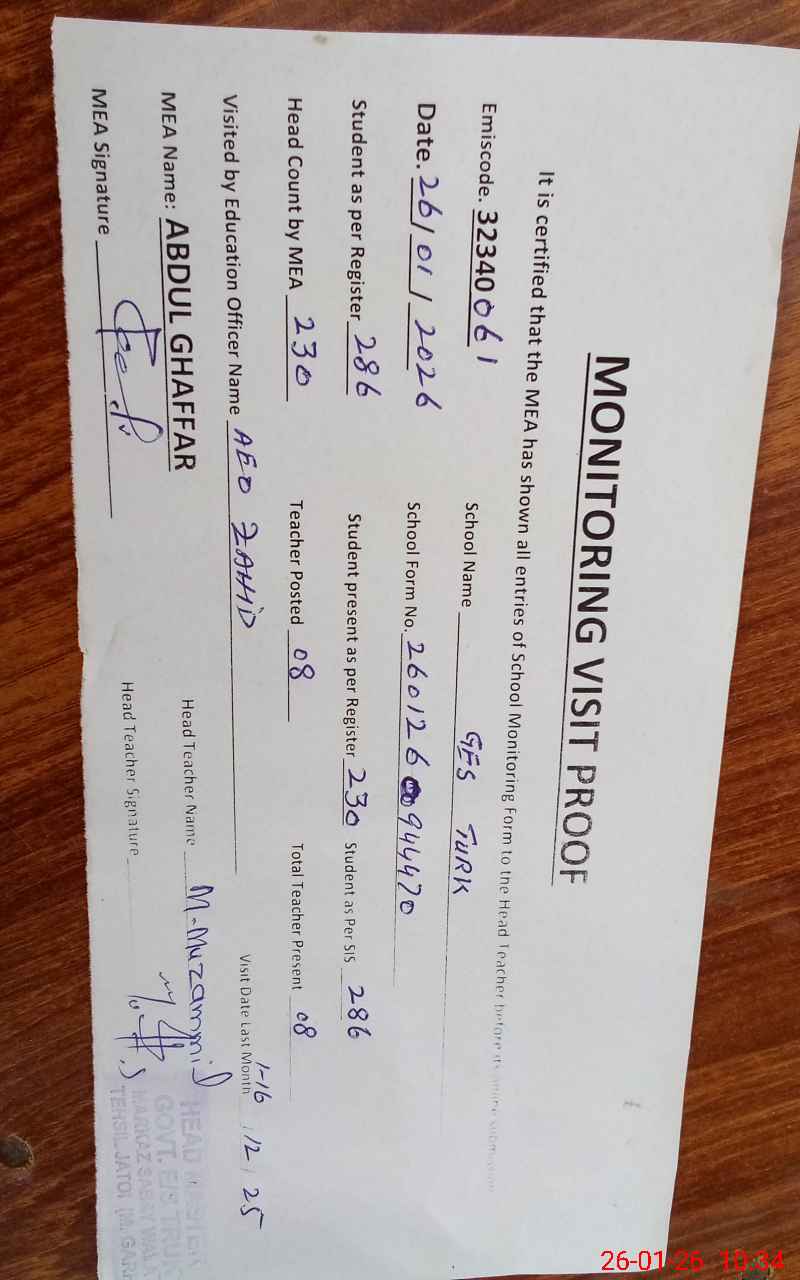 MONITORING VISIT PROOF
It is certified that the MEA has shown all entries of School Monitoring Form to the Head Teacher before its online submission
Emiscode. 32340061 School Name GES TURK
Date. 26/01/2026 School Form No. 260126 944470
Student as per Register 286 Student present as per Register 230 Student as Per SIS 286
Head Count by MEA 230 Teacher Posted 08 Total Teacher Present 08
Visited by Education Officer Name AEO ZAHID Visit Date Last Month 1-16/12/25
MEA Name: ABDUL GHAFFAR Head Teacher Name M-Muzammil
MEA Signature Head Teacher Signature
HEAD MASTER
GOVT. E/S TRUK
MARKAZ SABAY WALA
TEHSIL JATOI (M. GAR
26-01-26 10:34